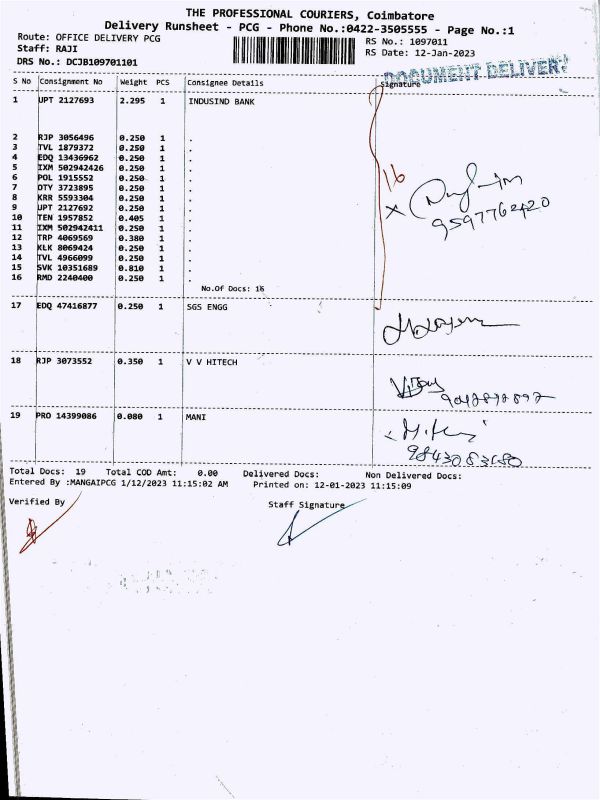 THE PROFESSIONAL COURIERS, Coimbatore
Delivery Runsheet - PCG - Phone No.:0422-3505555 - Page No.:1
Route: OFFICE DELIVERY PCG
RS No.: 1097011
Staff: RAJI
RS Date: 12-Jan-2023
DRS No.: DCJB109701101
DOCUMENT DELIVERY
S No Consignment No Weight PCS Consignee Details Signature
1 UPT 2127693 2.295 1 INDUSIND BANK
2 RJP 3056496 0.250 1 .
3 TVL 1879372 0.250 1 .
4 EDQ 13436962 0.250 1 .
5 IXM 502942426 0.250 1 .
6 POL 1915552 0.250 1 .
7 OTY 3723895 0.250 1 .
8 KRR 5593304 0.250 1 .
9 UPT 2127692 0.250 1 .
10 TEN 1957852 0.405 1 .
11 IXM 502942411 0.250 1 .
12 TRP 4069569 0.380 1 .
13 KLK 8069424 0.250 1 .
14 TVL 4966099 0.250 1 .
15 SVK 10351689 0.810 1 .
16 RMD 2240400 0.250 1 .
No.Of Docs: 16
16
9597762420
17 EDQ 47416877 0.250 1 SGS ENGG
18 RJP 3073552 0.350 1 V V HITECH
19 PRO 14399086 0.080 1 MANI
Total Docs: 19 Total COD Amt: 0.00 Delivered Docs: Non Delivered Docs:
Entered By :MANGAIPCG 1/12/2023 11:15:02 AM Printed on: 12-01-2023 11:15:09
Verified By Staff Signature